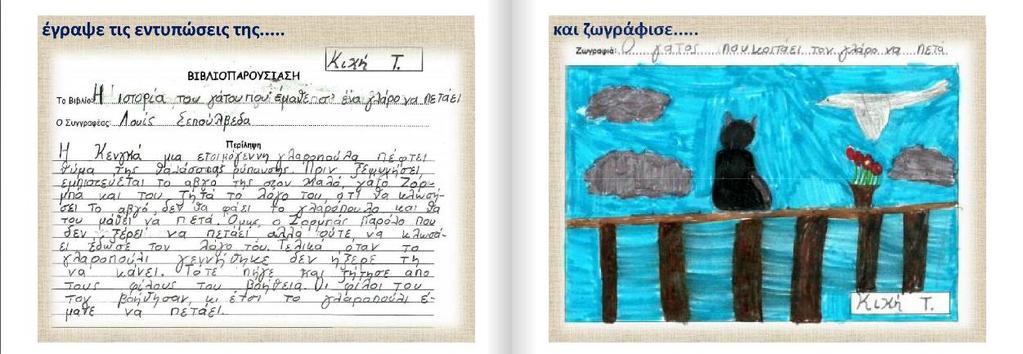 έγραψε τις εντυπώσεις της.....
Κική Τ.
ΒΙΒΛΙΟΠΑΡΟΥΣΙΑΣΗ
Το Βιβλίο: Η ιστορία του γάτου που έμαθε σ' ένα γλάρο να πετάει
Ο Συγγραφέας: Λουίς Σεπούλβεδα
Περίληψη
Η Κενγκά μια ετοιμόγεννη γλαροπούλα πέφτει
θύμα της θαλάσσιας ρύπανσης. Πριν ξεψυχήσει,
εμπιστεύεται το αβγό της στον καλό, γάτο Ζορ-
μπά και του ζητά το λόγο του ότι θα κλωσή-
σει το αβγό, δεν θα φάει το γλαρόπουλο και θα
του μάθει να πετά. Όμως ο Ζορμπάς παρόλο που
δεν ξέρει να πετάει αλλά ούτε να κλωσά-
ει έδωσε τον λόγο του. Τελικά όταν το
γλαροπούλι γεννήθηκε δεν ήξερε τη
να κάνει. Τότε πήγε και ζήτησε απο
τους φίλους του βοήθεια. Οι φίλοι του
τον βοήθησαν, κι έτσι το γλαροπούλι έ-
μαθε να πετάει.
και ζωγράφισε.....
Ζωγραφιά: Ο γάτος που κοιτάει τον γλάρο να πετά
Κική Τ.